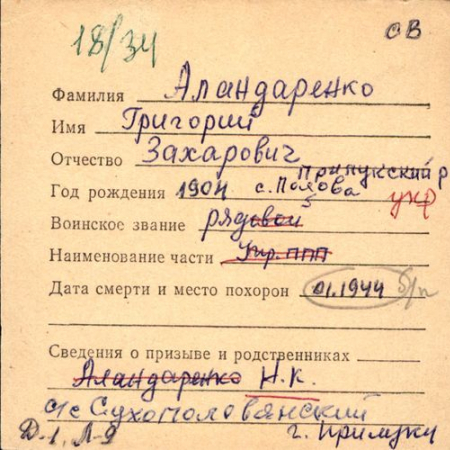 18/34 ОВ
Фамилия Аландаренко
Имя Григорий
Отчество Захарович
Прилукский р
Год рождения 1904 с. Полова укр
Воинское звание рядовой
Наименование части
Дата смерти и место похорон 01.1944 б/п
Сведения о призыве и родственниках
Аландаренко Н.К.
с/с Сухополовянский
Д-1, Л-9 г. Прилуки